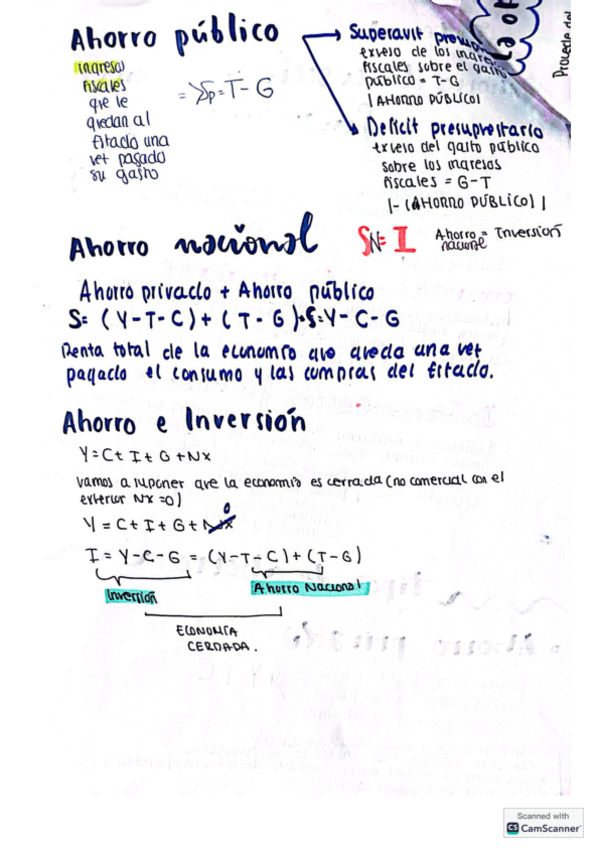 Ahorro público
ingresos
fiscales
que le
quedan al
Estado una
vez pagado
su gasto
=> Sp = T - G
Superavit presu
exceso de los ingre
fiscales sobre el gasto
público = T-G
| AHORRO PÚBLICO|
Deficit presupuestario
exceso del gasto público
sobre los ingresos
fiscales = G-T
|-(AHORRO PÚBLICO)|
Procede del
Ahorro nacional
SN= I
Ahorro = Inversión
nacional
Ahorro privado + Ahorro público
S= (Y-T-C)+(T-G) S=Y-C-G
Renta total de la economía que queda una vez
pagado el consumo y las compras del Estado.
Ahorro e Inversión
Y=C+I+G+Nx
vamos a suponer que la economía es cerrada (no comercial con el
exterior NX=0)
0
Y=C+I+G+Nx
I = Y-C-G = (Y-T-C)+(T-G)
Inversión
Ahorro Nacional
ECONOMÍA
CERRADA.
Scanned with
CS CamScanner